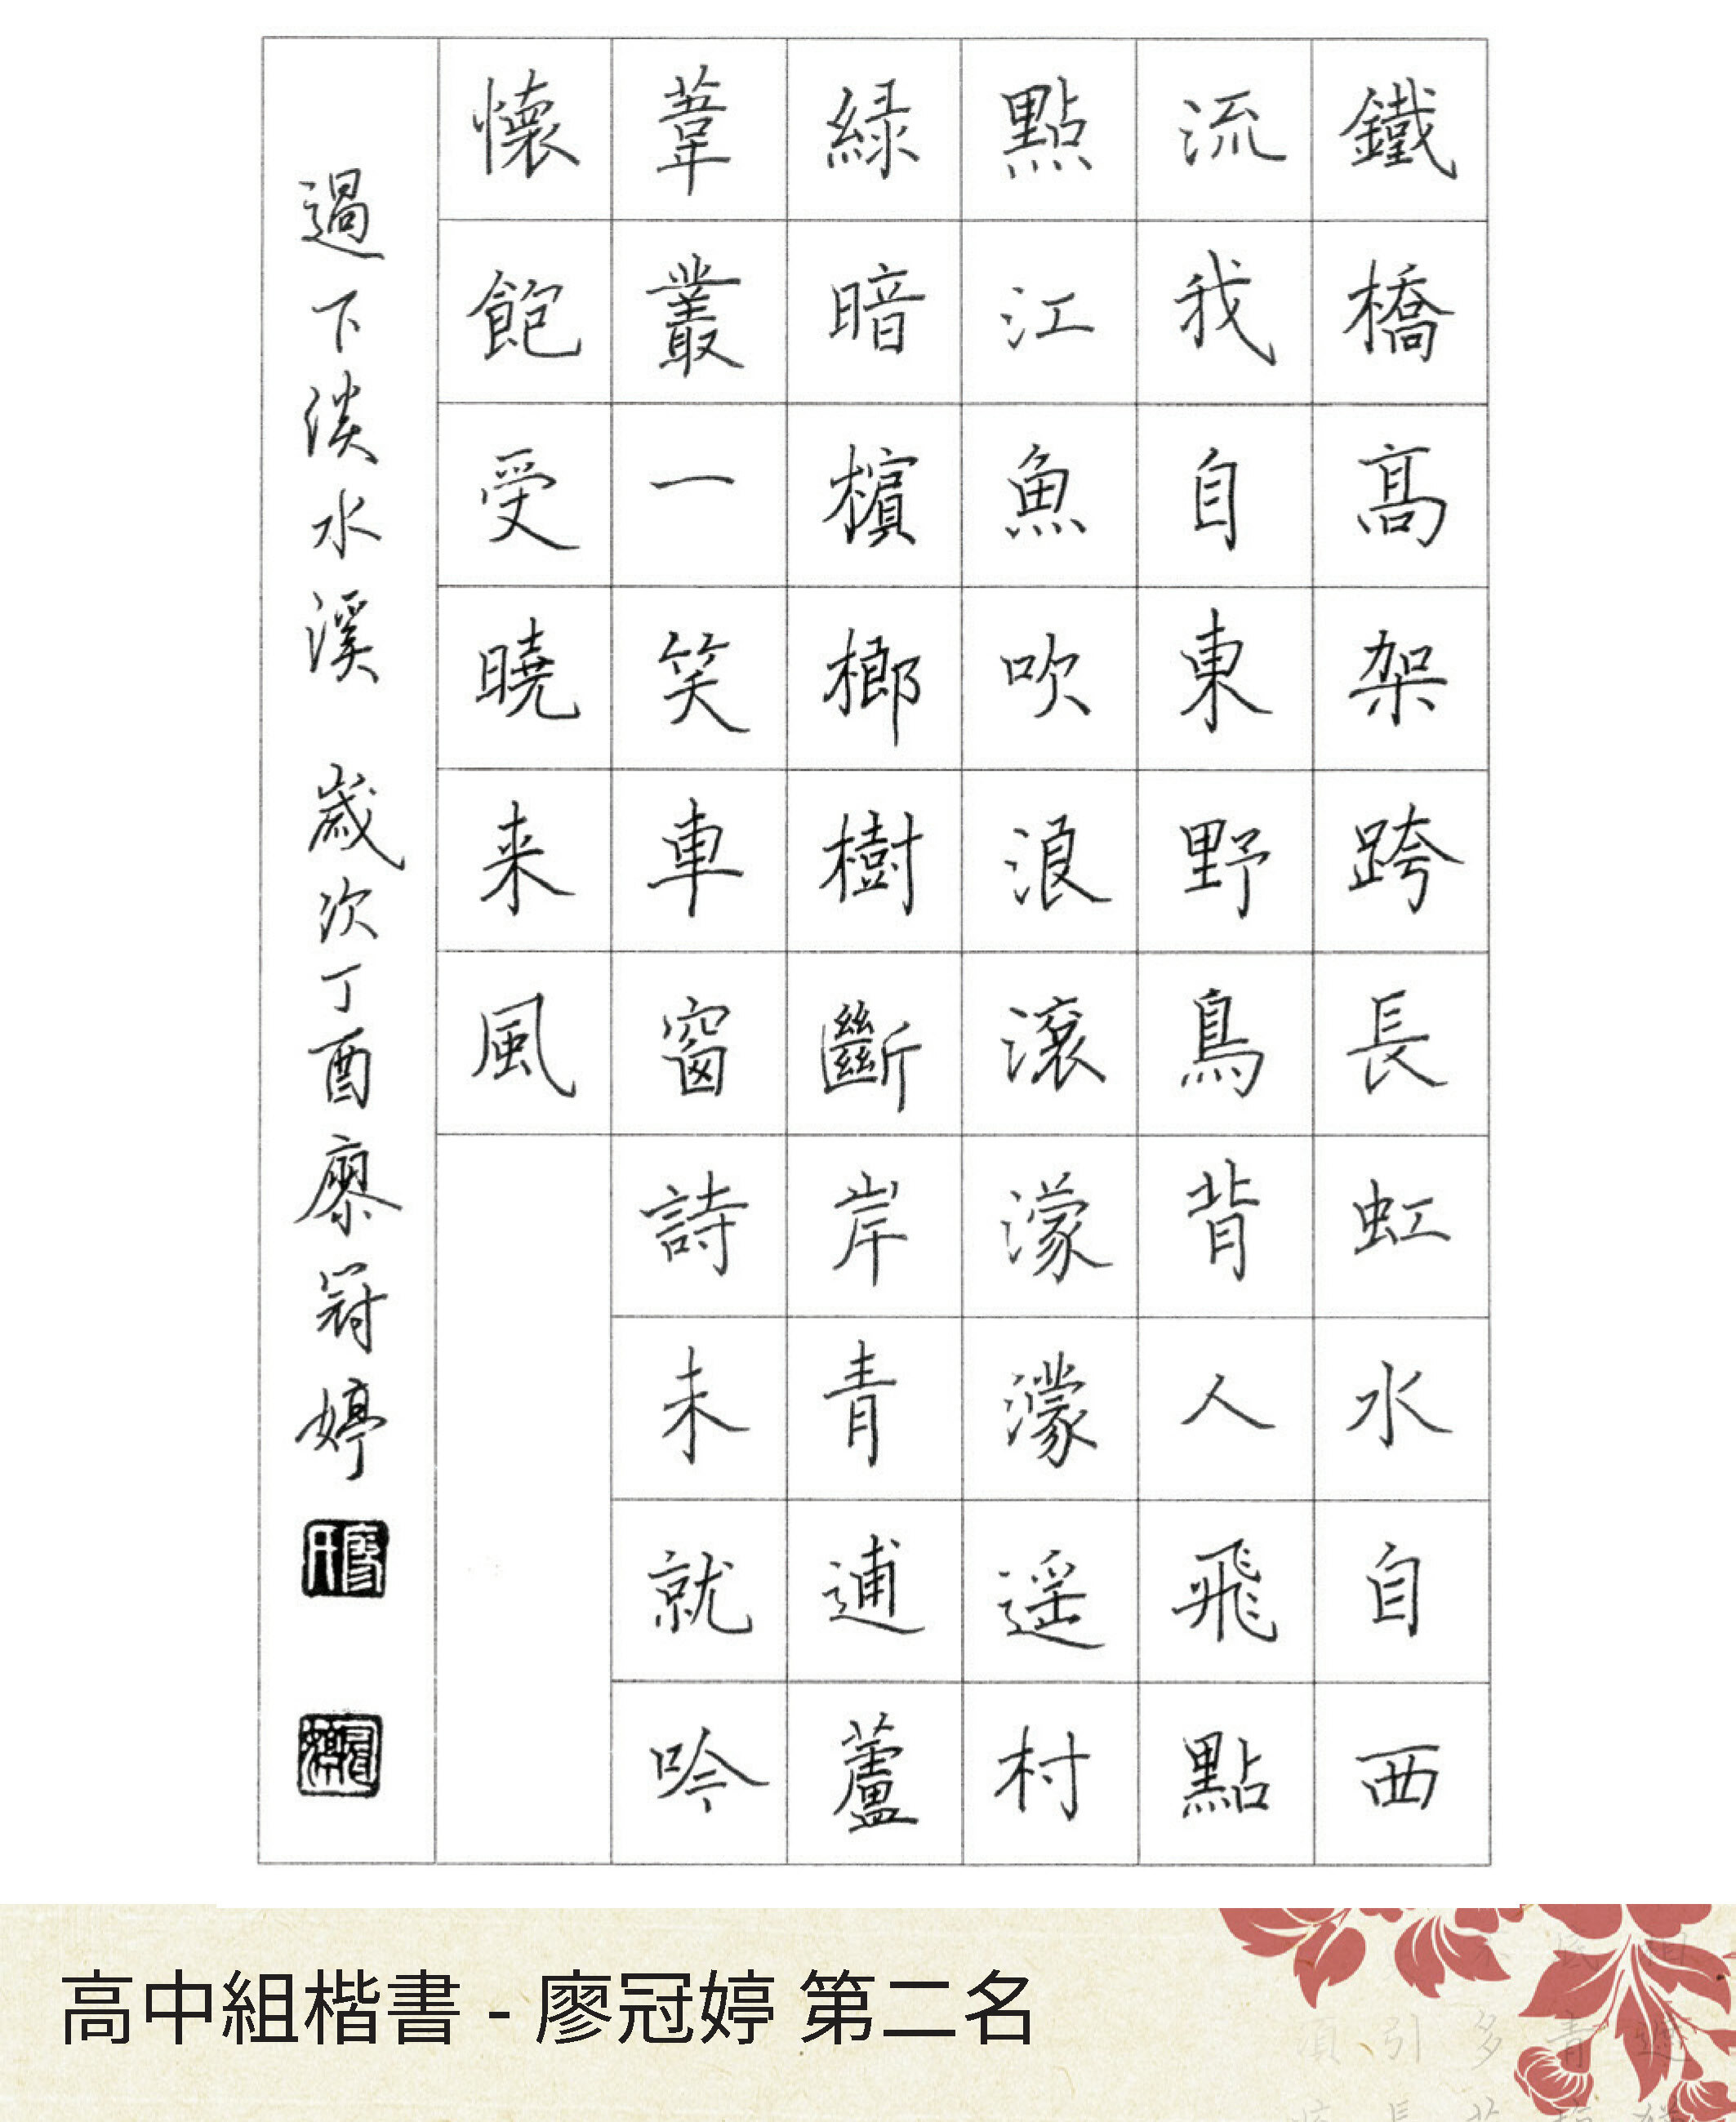 鐵橋高架跨長虹水自西
流我自東野鳥背人飛點
點江魚吹浪滾濛濛遥村
綠暗檳榔樹斷岸青逋蘆
葦叢一笑車窗詩未就吟
懷飽受曉来風
過下淡水溪 歲次丁酉廖冠婷
高中組楷書 - 廖冠婷 第二名